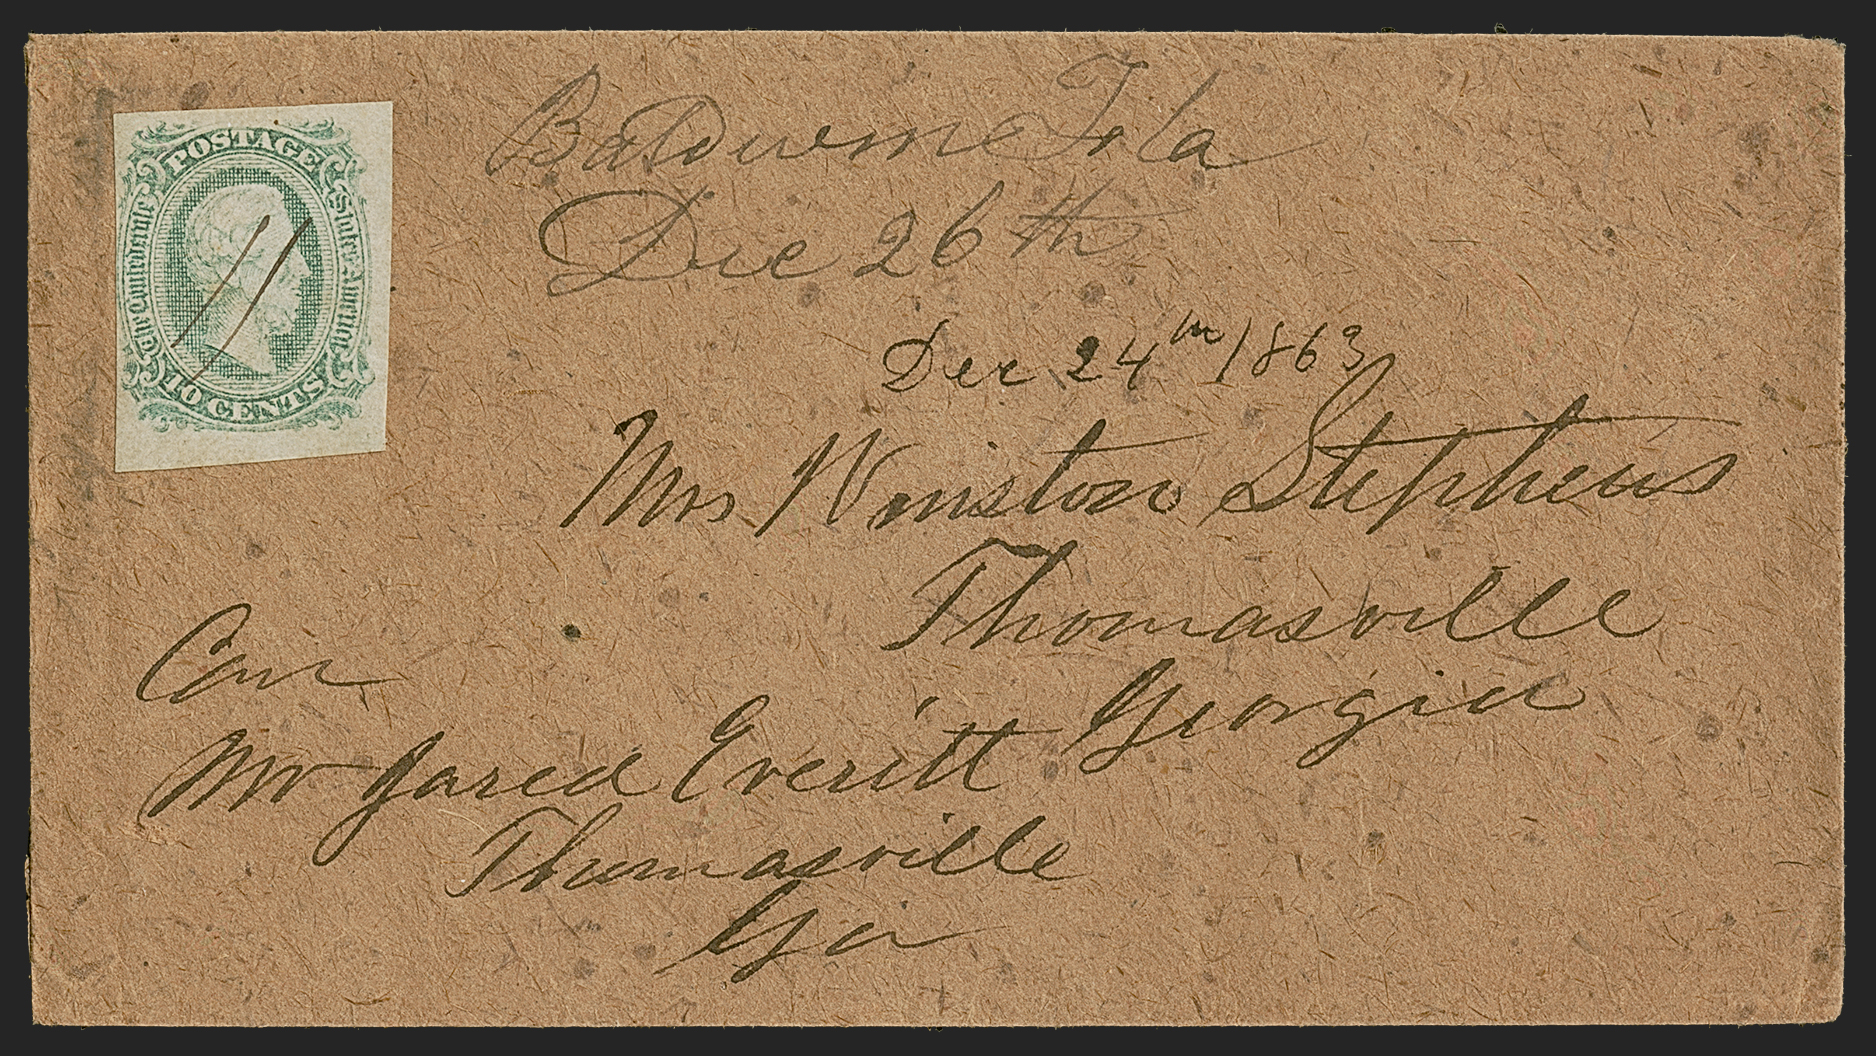 POSTAGE
The Confederate States of America
10 CENTS
Baldwine Fla
Dec 26th
Dec 24th 1863
Mrs Winston Stephens
Thomasville
Georgia
Care
Mr Jared Everitt
Thomasville
Ga